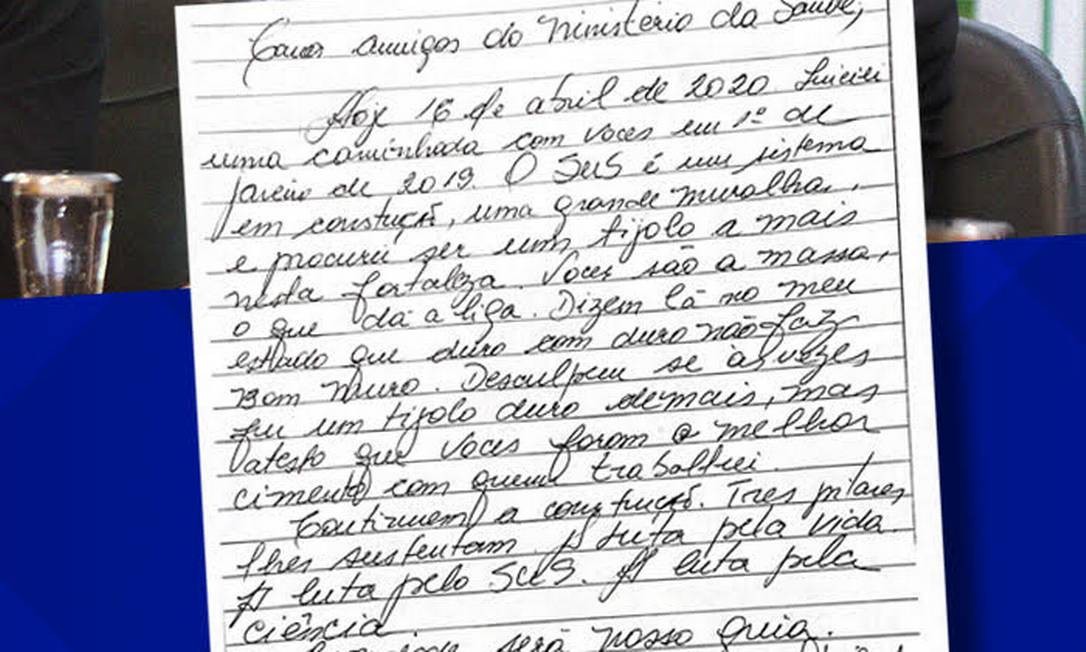 Caros amigos do Ministério da Saúde,
Hoje 16 de abril de 2020. Iniciei
uma caminhada com voces em 1º de
janeiro de 2019. O SUS é um sistema
em construção, uma grande muralha,
e procurei ser um tijolo a mais
nesta fortaleza. Voces são a massa,
o que dá a liga. Dizem lá no meu
estado que duro com duro não faz
Bom Muro. Desculpem se às vezes
fui um tijolo duro demais, mas
atesto que voces foram o melhor
cimento com quem trabalhei.
Continuem a construção. Tres pilares
lhes sustentam. A luta pela vida.
A luta pelo SUS. A luta pela
ciência.
será nosso guia.